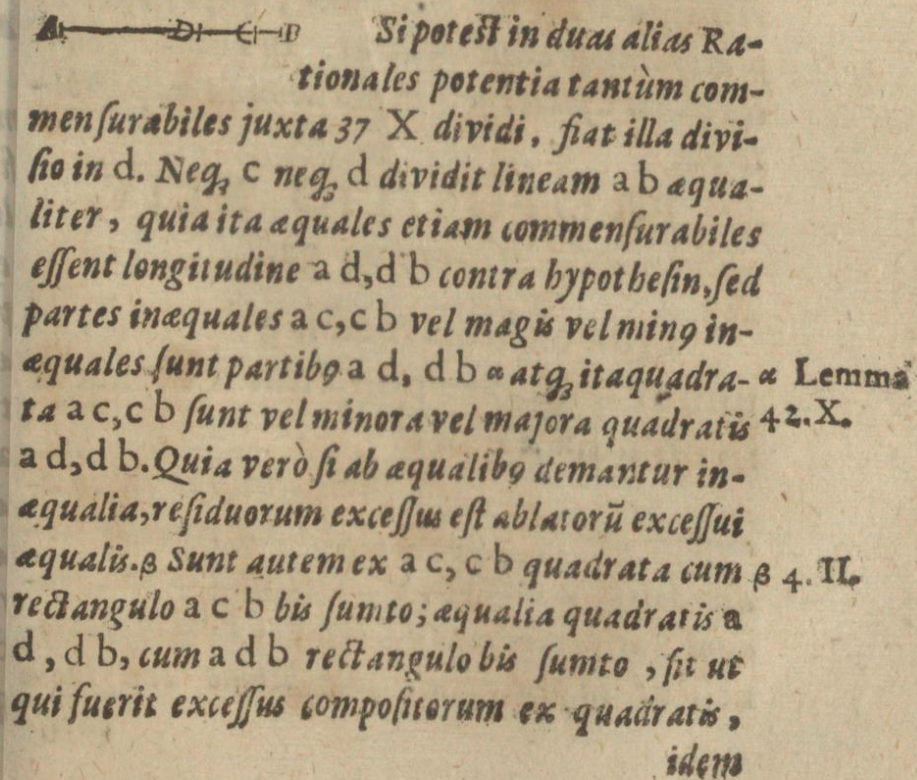 A D C B
Si potest in duas alias Ra-
tionales potentia tantùm com-
mensurabiles juxta 37 X dividi, fiat illa divi-
sio in d. Neq; c neq; d dividit lineam a b æqua-
liter, quia ita æquales etiam commensurabiles
essent longitudine a d, d b contra hypothesin, sed
partes inæquales a c, c b vel magis vel minꝰ in-
æquales sunt partibꝰ a d, d b α atq; ita quadra-
ta a c, c b sunt vel minora vel majora quadratis
a d, d b. Quia verò si ab æqualibꝰ demantur in-
æqualia, residuorum excessus est ablatorũ excessui
æqualis. β Sunt autem ex a c, c b quadrata cum
rectangulo a c b bis sumto; æqualia quadratis a
d, d b, cum a d b rectangulo bis sumto, fit ut
qui fuerit excessus compositorum ex quadratis,
idem
α Lemma
42. X.
β 4. II.